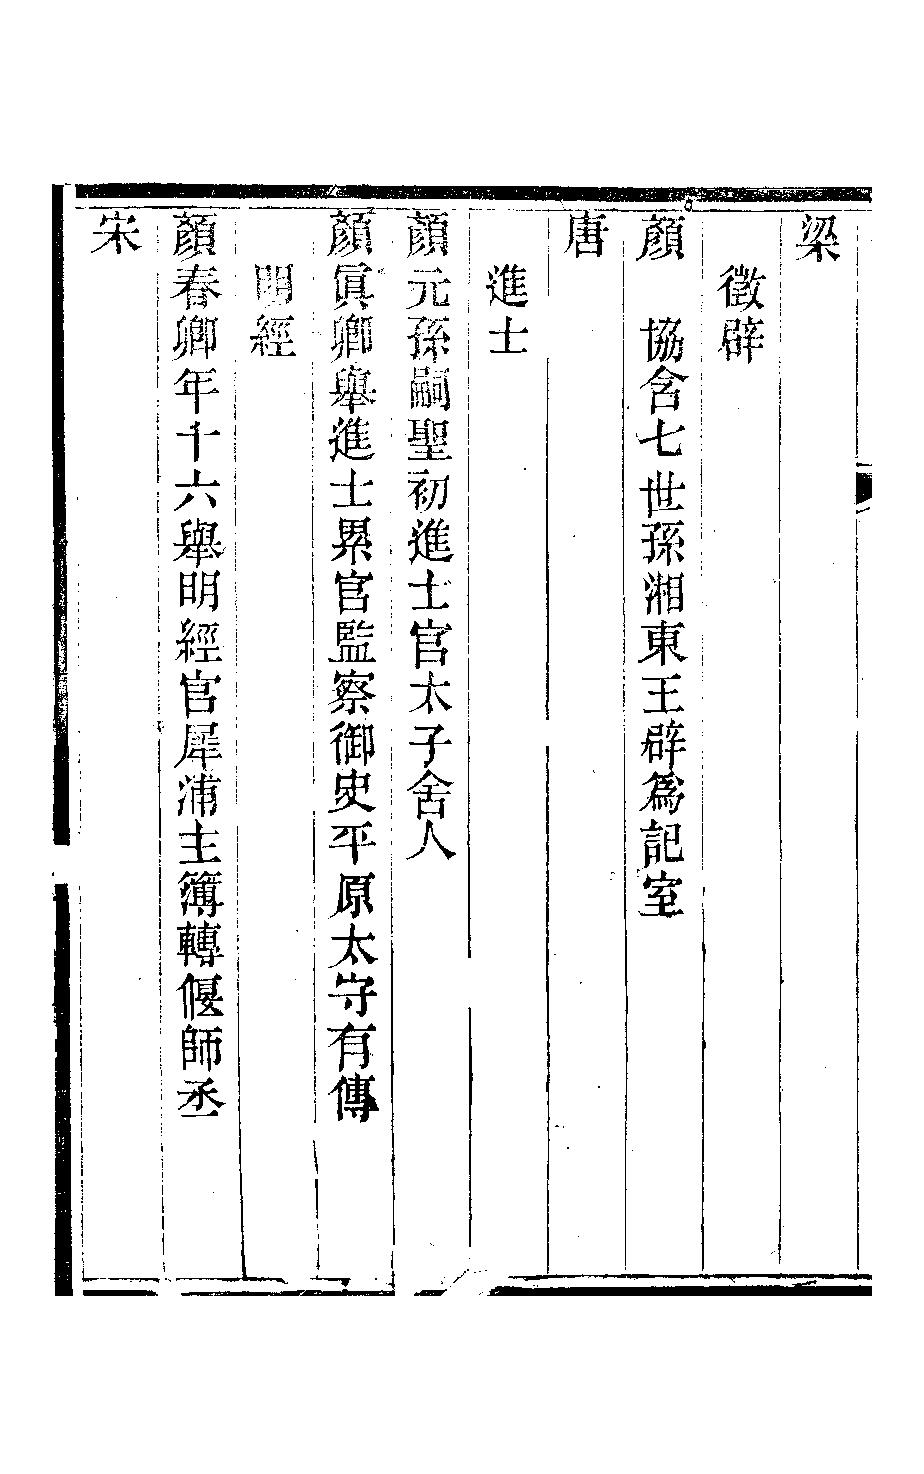 梁
徵辟
顏　協含七世孫湘東王辟爲記室
唐
進士
顏元孫嗣聖初進士官太子舍人
顏眞卿舉進士累官監察御史平原太守有傳
明經
顏春卿年十六舉明經官犀浦主簿轉偃師丞
宋